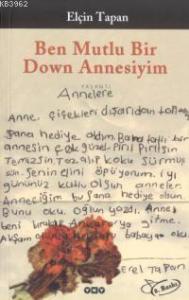 Elçin Tapan
Ben Mutlu Bir
Down Annesiyim
YAŞANTI
Annelere
Anne, çiçekleri dışarıdan topladım
Sana hediye aldım. Bana tatlı bir
annesin çok güzel. Pırıl Pırılsın
Temizsin. Toz alıp koku sürmüş
sün. Senin elini öpüyorum. iyi
gününüz kutlu olsun anneler.
Anneciğim bu sana hediye olsun.
Bunu oku. Oğlun yazdı. Annet
beni bırak Ankara'ya gitme.
Akşam
babaya oku.
Erel Tapan
8. Baskı
YKY